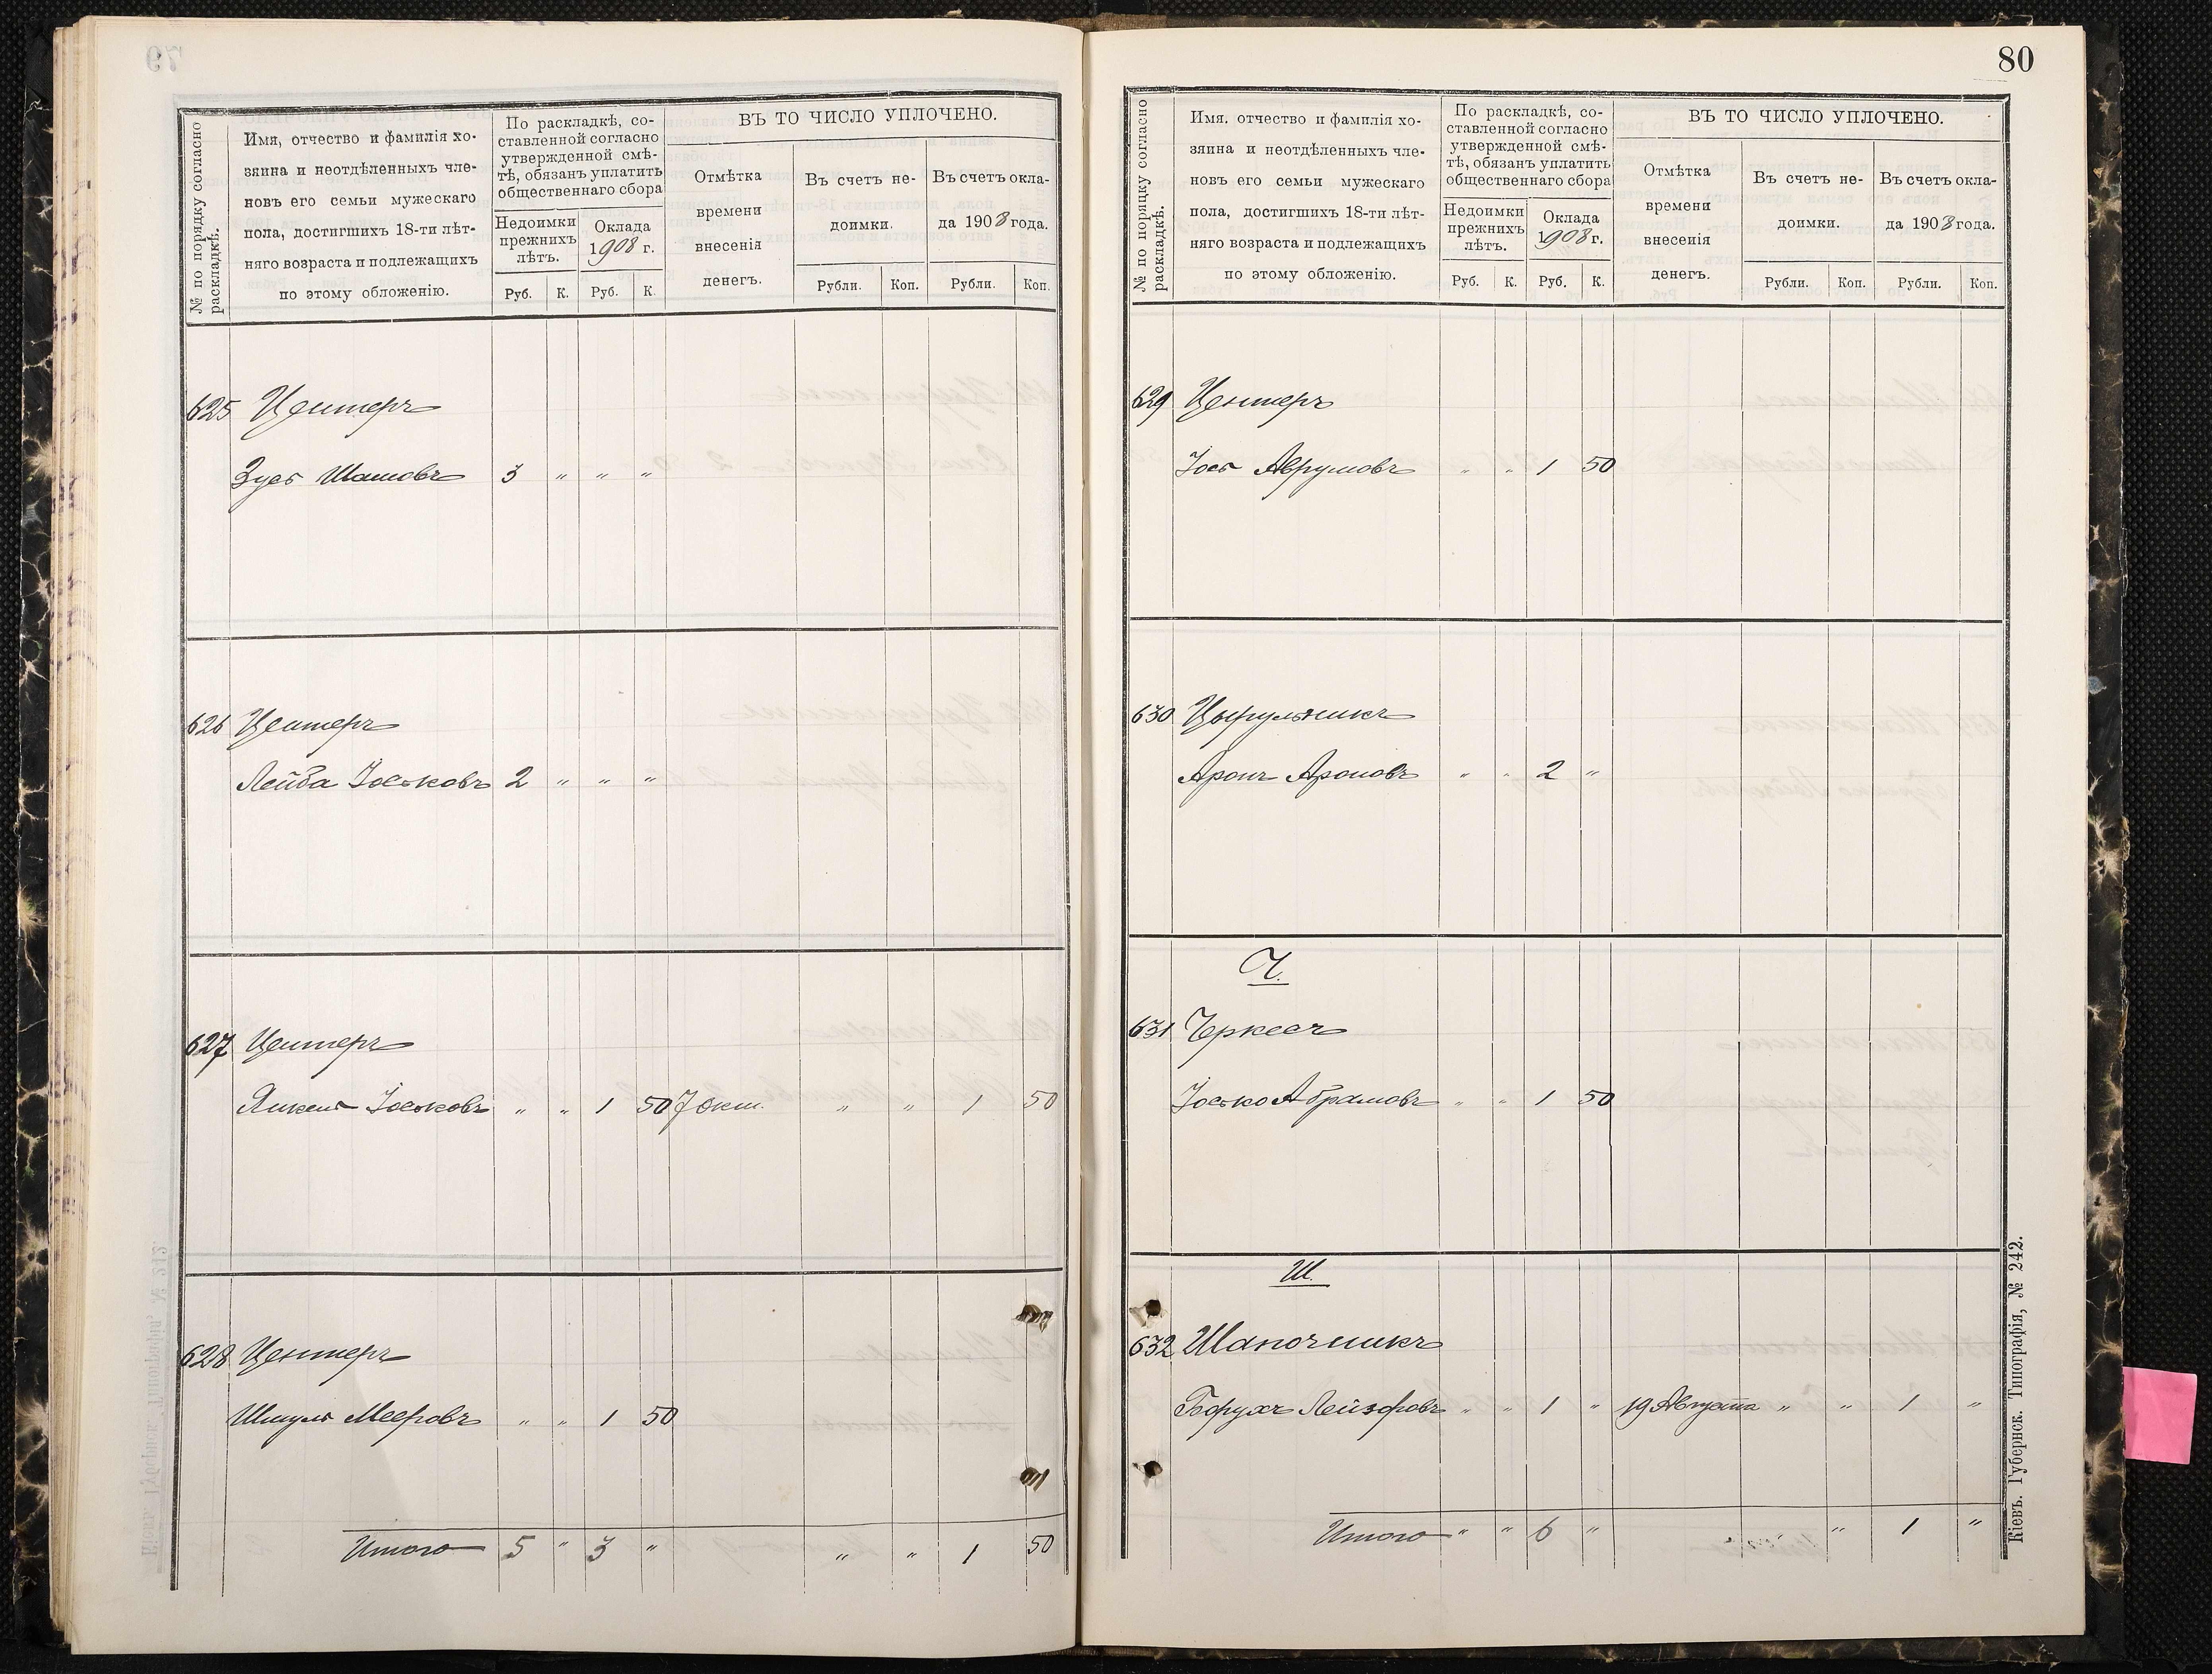 № по порядку согласно
раскладкѣ.
Имя, отчество и фамилія хо-
зяина и неотдѣленныхъ чле-
новъ его семьи мужескаго
пола, достигшихъ 18-ти лѣт-
няго возраста и подлежащихъ
по этому обложенію.
По раскладкѣ, со-
ставленной согласно
утвержденной смѣ-
тѣ, обязанъ уплатить
общественнаго сбора
Недоимки
прежнихъ
лѣтъ.
Оклада
1908 г.
Руб. К. Руб. К.
ВЪ ТО ЧИСЛО УПЛОЧЕНО.
Отмѣтка
времени
внесенія
денегъ.
Въ счетъ не-
доимки.
Въ счетъ окла-
да 1908 года.
Рубли. Коп. Рубли. Коп.
625 Центеръ
Зусь 3 " " "
626 Центеръ
Лейба Іоськовъ 2 " " "
627 Центеръ
Янкель Іоськовъ " " 1 50 7 Окт. " " 1 50
628 Центеръ
Шмуль Мееровъ " " 1 50
Итого 5 " 3 " " " 1 50
80
№ по порядку согласно
раскладкѣ.
Имя, отчество и фамилія хо-
зяина и неотдѣленныхъ чле-
новъ его семьи мужескаго
пола, достигшихъ 18-ти лѣт-
няго возраста и подлежащихъ
по этому обложенію.
По раскладкѣ, со-
ставленной согласно
утвержденной смѣ-
тѣ, обязанъ уплатить
общественнаго сбора
Недоимки
прежнихъ
лѣтъ.
Оклада
1908 г.
Руб. К. Руб. К.
ВЪ ТО ЧИСЛО УПЛОЧЕНО.
Отмѣтка
времени
внесенія
денегъ.
Въ счетъ не-
доимки.
Въ счетъ окла-
да 1908 года.
Рубли. Коп. Рубли. Коп.
629 Центеръ
Іось Аврумовъ " " 1 50
630 Цырульникъ
Аронъ Ароновъ " " 2 "
Ч.
631 Черкесъ
Іосько Абрамовъ " " 1 50
Ш.
632 Шапочникъ
Борухъ Лейзоровъ " " 1 " 19 Августа " " 1 "
Итого " " 6 " " " 1 "
Кіевъ. Губернск. Типографія, № 242.